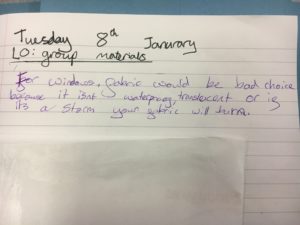 Tuesday 8th Janurary
LO: group materials
For windows, fabric would be bad choice
because it isnt waterproof, translucent or if
its a storm your fabric will